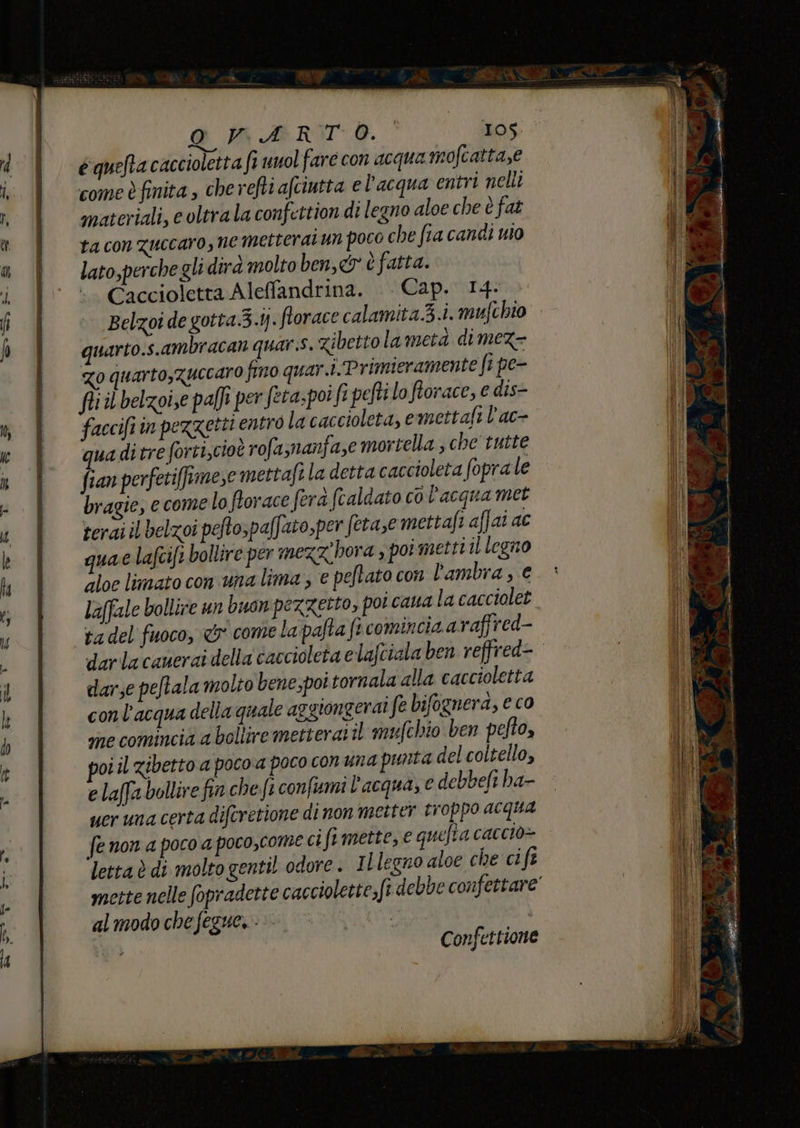 Q V A R T O. 105
é questa caccioletta si uuol fare con acqua moscatta,e
come è finita , che resti asciutta e l'acqua entri nelli
materiali, e oltra la confettion di legno aloe che è fat
ta con zuccaro, ne metterai un poco che sia candi uio
lato,perche gli dirà molto ben,& è fatta.
Caccioletta Alessandrina. Cap. 14.
Belzoi de gotta.ʒ.ij. storace calamita.ʒ.i. muschio
quarto.s.ambracan quar.s. zibetto la metà di mez-
zo quarto,zuccaro fino quar.i.Primieramente si pe-
sti il belzoi,e passi per seta,poi si pesti lo storace, e dis-
faccisi in pezzetti entro la caccioleta, e mettasi l'ac-
qua di tre forti,cioè rosa,nanfa,e mortella , che tutte
sian perfetissime,e mettasi la detta caccioleta sopra le
bragie, e come lo storace serà scaldato cō l'acqua met
terai il belzoi pesto,passato,per seta,e mettasi assai ac
qua e lascisi bollire per mezz'hora , poi metti il legno
aloe limato con una lima , e pestato con l'ambra , e
lassale bollire un buon pezzetto, poi caua la cacciolet
ta del fuoco, & come la pasta si comincia a raffred-
dar la cauerai della caccioleta e lasciala ben reffred-
dar,e pestala molto bene,poi tornala alla caccioletta
con l'acqua della quale aggiongerai se bisognerà, e co
me comincia a bollire metterai il muschio ben pesto,
poi il zibetto a poco a poco con una punta del coltello,
e lassa bollire fin che si consumi l'acqua, e debbesi ha-
uer una certa discretione di non metter troppo acqua
se non a poco a poco,come ci si mette, e questa caccio-
letta è di molto gentil odore. Il legno aloe che ci si
mette nelle sopradette cacciolette,si debbe confettare
al modo che segue.
Confettione